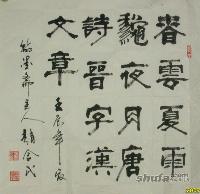 春雲夏雨
龝夜月唐
詩晉字漢
文章
壬辰年
墨齋主人
shufa